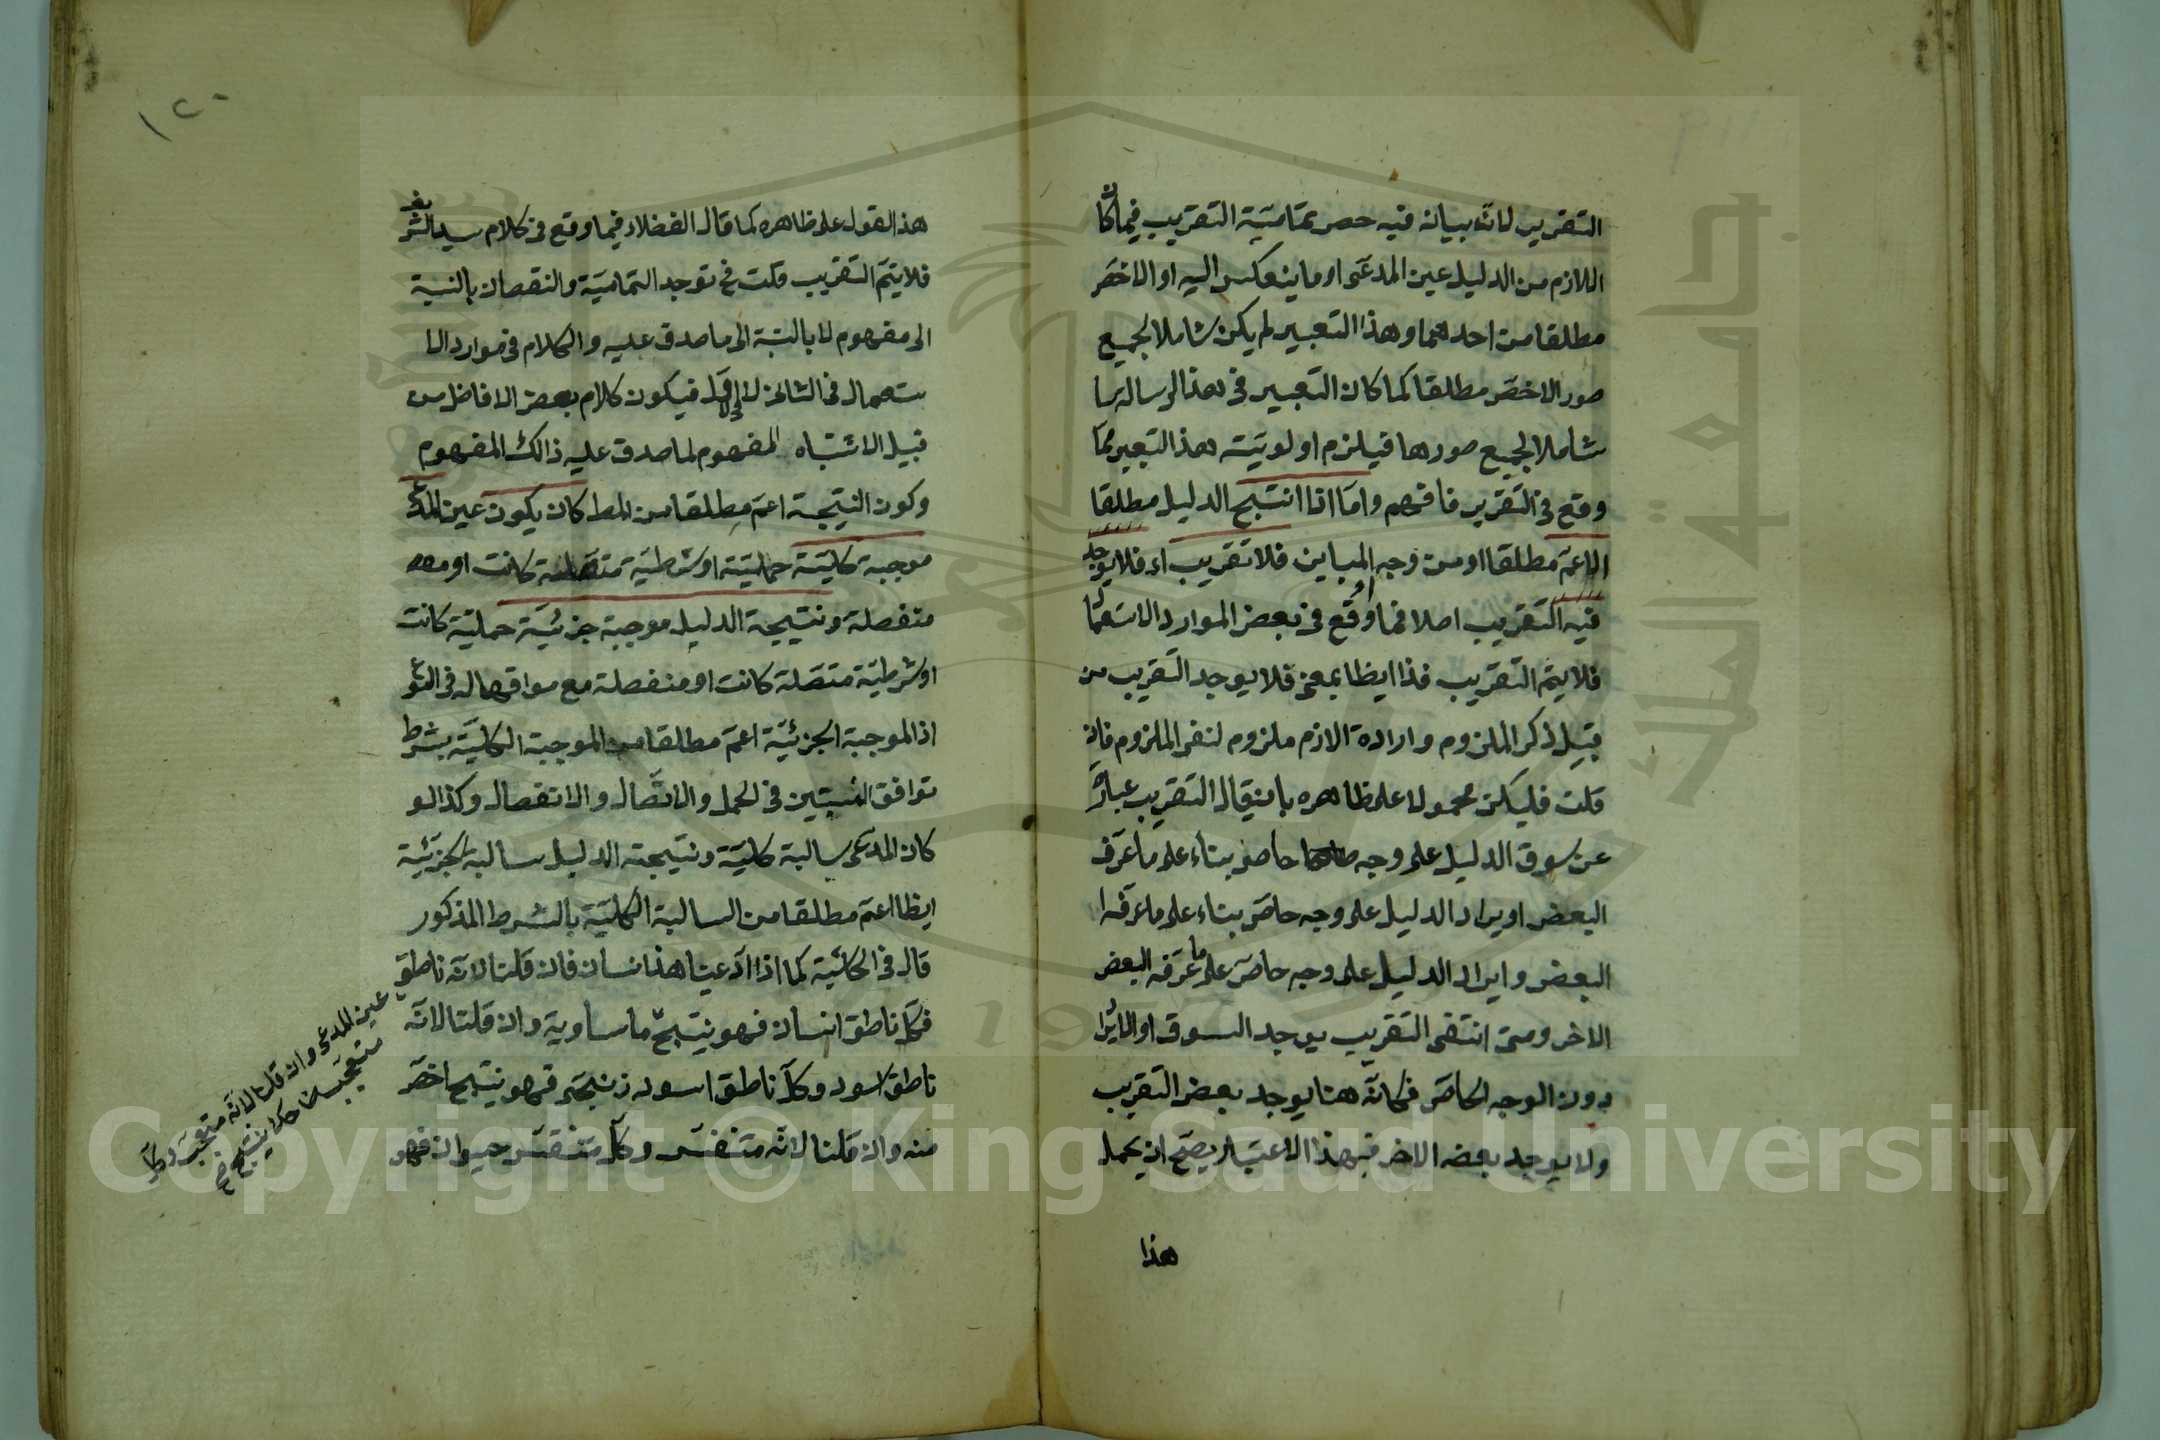 التقرير لانه ببيانه فيه حصر تمامية التقريب فيما كان
اللازم من الدليل عين المدعى او ما ينعكس اليه او الاخص
مطلقا من احدهما وهذا التعبير لم يكن شاملا لجميع
صور الاخص مطلقا كما كان التعبير في هذا الرسالة
شاملا لجميع صورها فيلزم اولوية هذا التعبير مما
وقع في التقرير فافهم واما اذا انتج الدليل مطلقا
الاعم مطلقا او من وجه المباين فلا تقريب اء فلا يوجد
فيه التقريب اصلا فما وقع في بعض الموارد الاستعما
فلا يتم التقريب فذا ايظا بمعنى فلا يوجد التقريب من
قبيل ذكر الملزوم وارادة الازم ملزوم لنفى الملزوم فان
قلت فليكن محمولا على ظاهره بان يقال التقريب عبارة
عن سوق الدليل على وجه خاص بناء على ما عرف
البعض او يراد الدليل على وجه خاص بناء على ما عرفه
البعض وايراد الدليل على وجه خاص على ما عرفه البعض
الاخر ومتى انتفى التقريب يوجد السوق او الايراد
دون الوجه الخاص فكانه هنا يوجد بعض التقريب
ولا يوجد بعضه الاخر فبهذا الاعتبار يصح ان يحمل
هذا
١٢٠
هذا القول على ظاهره كما قال الفضلاء فيما وقع في كلام سيد الشريف
فلا يتم التقريب قلت ح توجد التمامية والنقصان بالنسبة
الى مفهوم لا بالنسبة الى ما صدق عليه والكلام في موارد الا
ستعمال في الثاني لا الاول فيكون كلام بعض الافاضل من
قبيل الاشتباه المفهوم لما صدق عليه ذالك المفهوم
وكون النتيجة اعم مطلقا من المط كان يكون عين المدعى
موجبة كلية حملية او شرطية متصلة كانت او
منفصلة ونتيجة الدليل موجبة جزئية حملية كانت
او شرطية متصلة كانت او منفصلة مع موافقها له في النوع
اذ الموجبة الجزئية اعم مطلقا من الموجبة الكلية بشرط
توافق النسبتين في الحمل والاتصال والانفصال وكذا لو
كان المدعى سالبة كلية ونتيجته الدليل سالبة الجزئية
ايظا اعم مطلقا من السالبة الكلية بالشرط المذكور
قال في الحاشية كما اذا ادعينا هذا انسان فان قلنا لانه ناطق
فكل ناطق انسان فهو ينتج ما ساوية وان قلنا لانه
ناطق اسود وكل ناطق اسود زنجى فهو ينتج اخص
منه وان قلنا لانه متنفس وكل متنفس حيوان فهو
عين المدعى وان قلنا لانه متعجب وكل
متعجب ضاحك ينتج
جامعة الملك
1957
Copyright © King Saud University